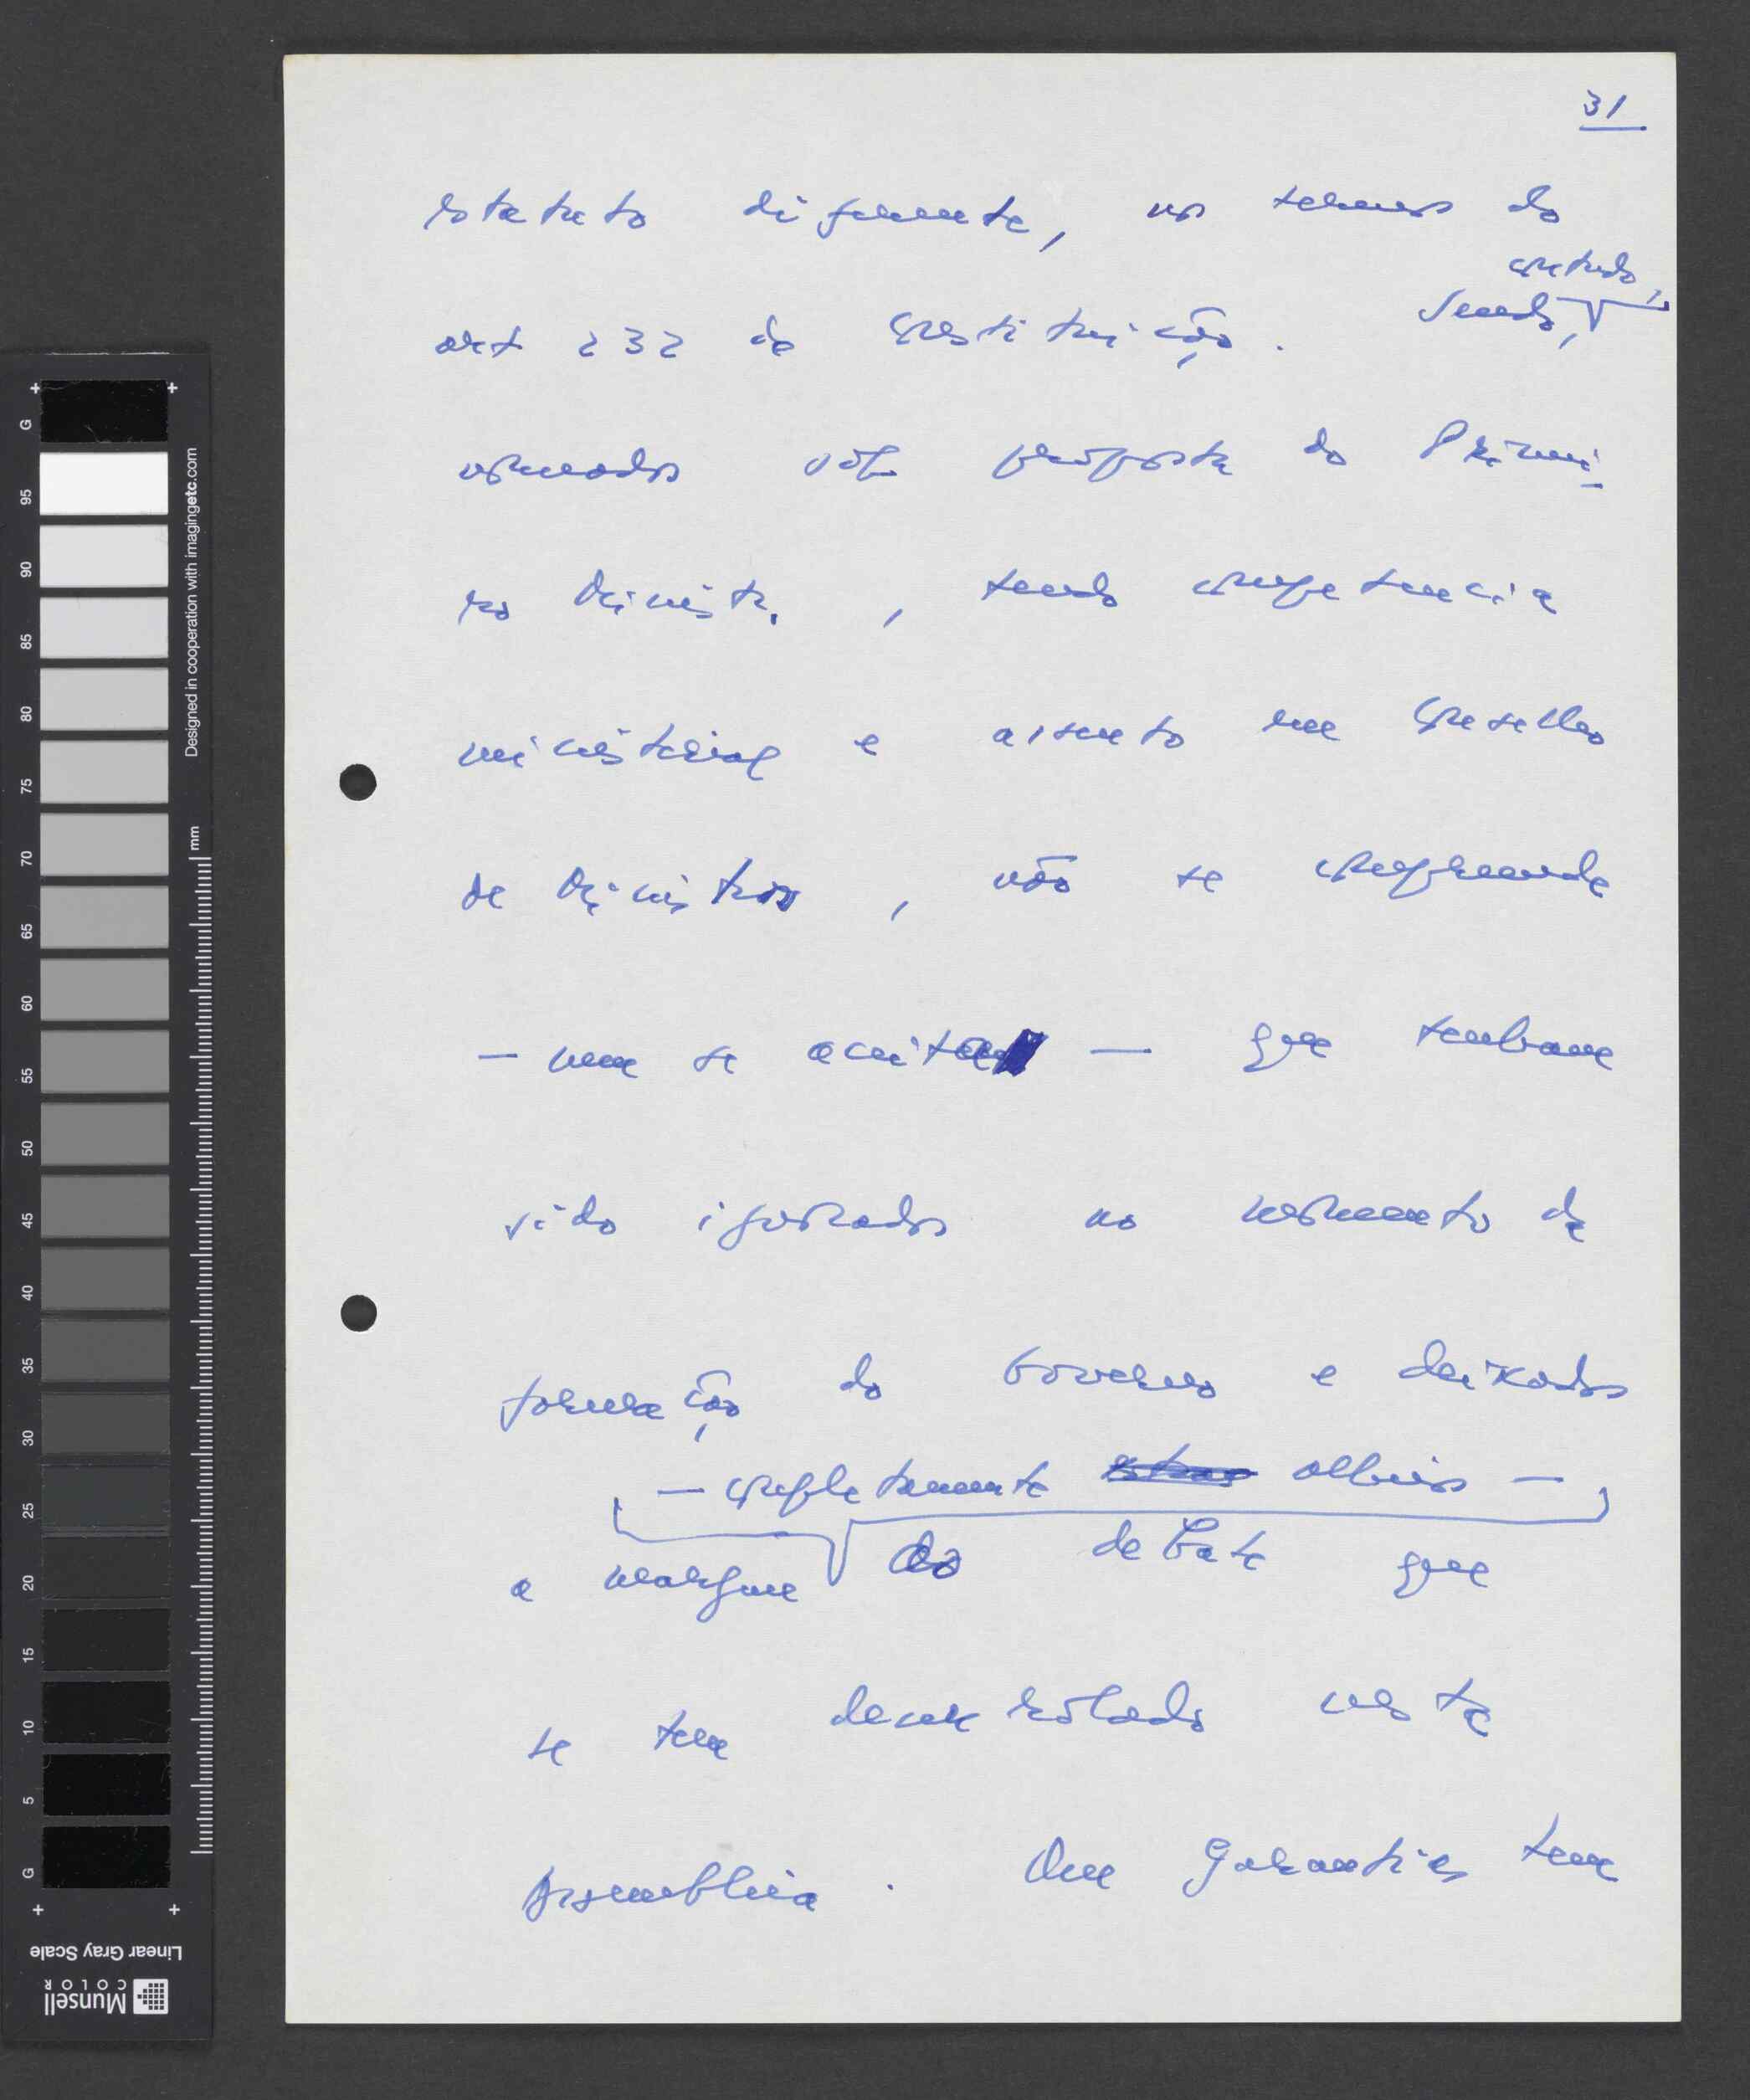 31
estatuto diferente, nos termos do
art 232 da Constituição. Sendo, contudo,
nomeados sob proposta do Primei-
ro Ministro, tendo competencia
ministerial e assento em Conselho
de Ministros, não se compreende
— nem se aceita — que tenham
sido ignorados no momento da
formação do Governo e deixados
— completamente alheios —
a margem do debate que
se tem desenrolado nesta
Assembleia. Que garantias tem
Designed in cooperation with imagingetc.com
mm
G 95 90 85 80 75 70 65 60 55 50 45 40 35 30 25 20 15 10 5 G
Linear Gray Scale
Munsell
COLOR